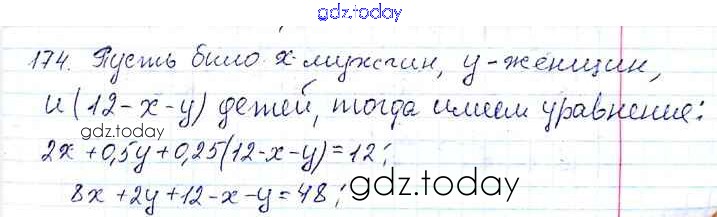 gdz.today
174. Пусть было x мужчин, y-женщин,
и (12-x-y) детей, тогда имеем уравнение:
gdz.today
2x+0,5y+0,25(12-x-y)=12;
8x+2y+12-x-y=48;
gdz.today